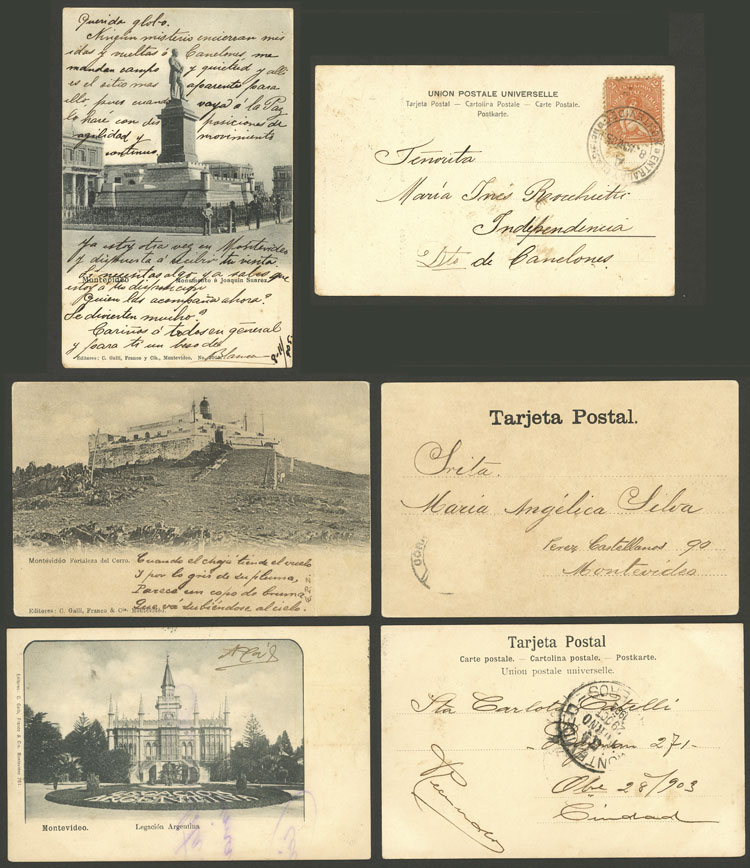 Querida globo.
Ningun misterio encierran mis
idas y vueltas ó Canelones, me
mandan campo y quietud y allí
es el sitio mas aparente para
ello pues cuando vaya ó la Paz
lo haré con disposiciones de
agilidad y movimiento
continuo
Ya estoy otra vez en Montevideo
y dispuesta á recibir tu visita
ya sabes que
estoy á tu disposición
Montevideo Monumento á Joaquin Suarez
Quien las acompaña ahora?
Se divierten mucho?
Cariños á todos en general
y para ti un beso de
Blanca
Editores: C. Galli, Franco y Cía, Montevideo. No.
UNION POSTALE UNIVERSELLE
Tarjeta Postal — Cartolina Postale — Carte Postale.
Postkarte.
Señorita
María Inés
Independencia
Dto de Canelones.
Montevideo Fortaleza del Cerro.
Cuando el chajá tiende el vuelo
I por lo gris de su pluma,
Parece un copo de bruma
Que vá subiéndose al cielo.
Editores: C. Galli, Franco & Cia. Montevideo.
Tarjeta Postal.
Srita.
Maria Angélica Silva
Perez Castellanos 90
Montevideo
Editores: C. Galli, Franco & Cia. Montevideo
LEGACION
ARGENTINA
Montevideo. Legación Argentina
Tarjeta Postal
Carte postale. — Cartolina postale. — Postkarte.
Union postale universelle.
Sta Carlota
271-
Obre 28/903
Ciudad
MONTEVIDEO